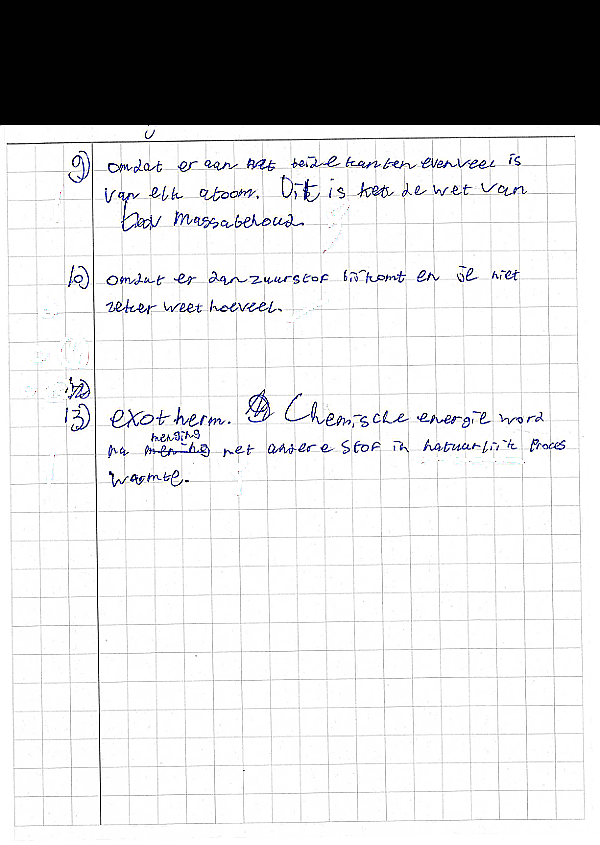 9) omdat er aan het beide kanten evenveel is
van elk atoom. Dit is het de wet van
massabehoud.
10) omdat er dan zuurstof bijkomt en je niet
zeker weet hoeveel.
12)
13) exotherm. Chemische energie word
na menging met andere stof in natuurlijk proces
warmte.